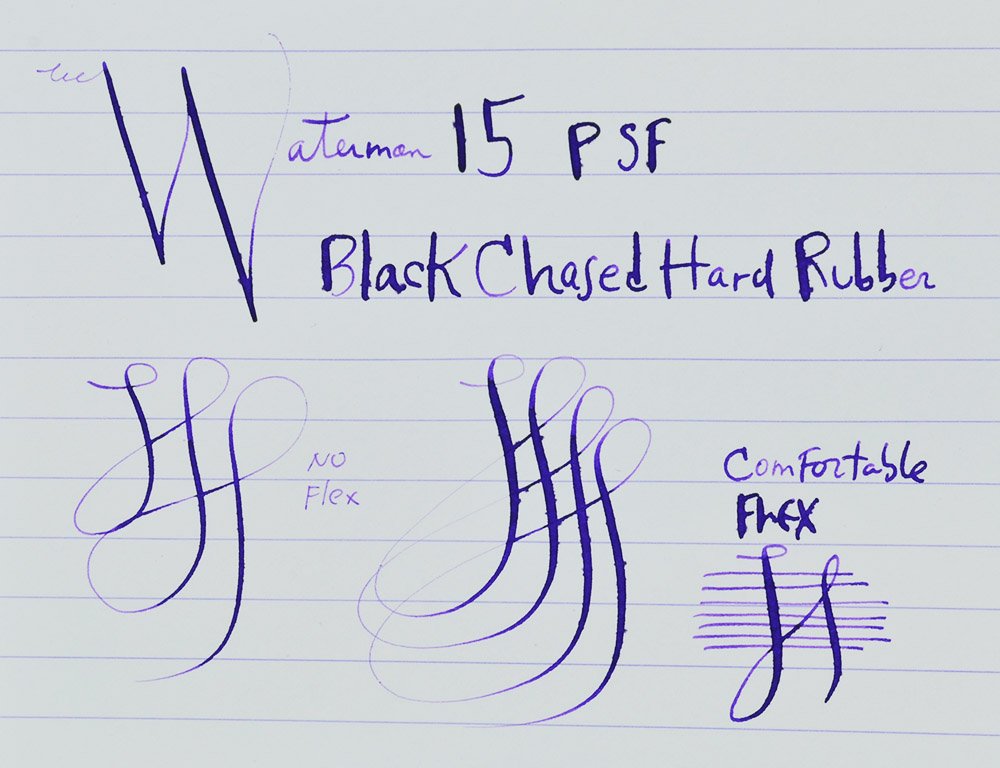 Waterman 15 PSF
Black Chased Hard Rubber
No
Flex
Comfortable
Flex